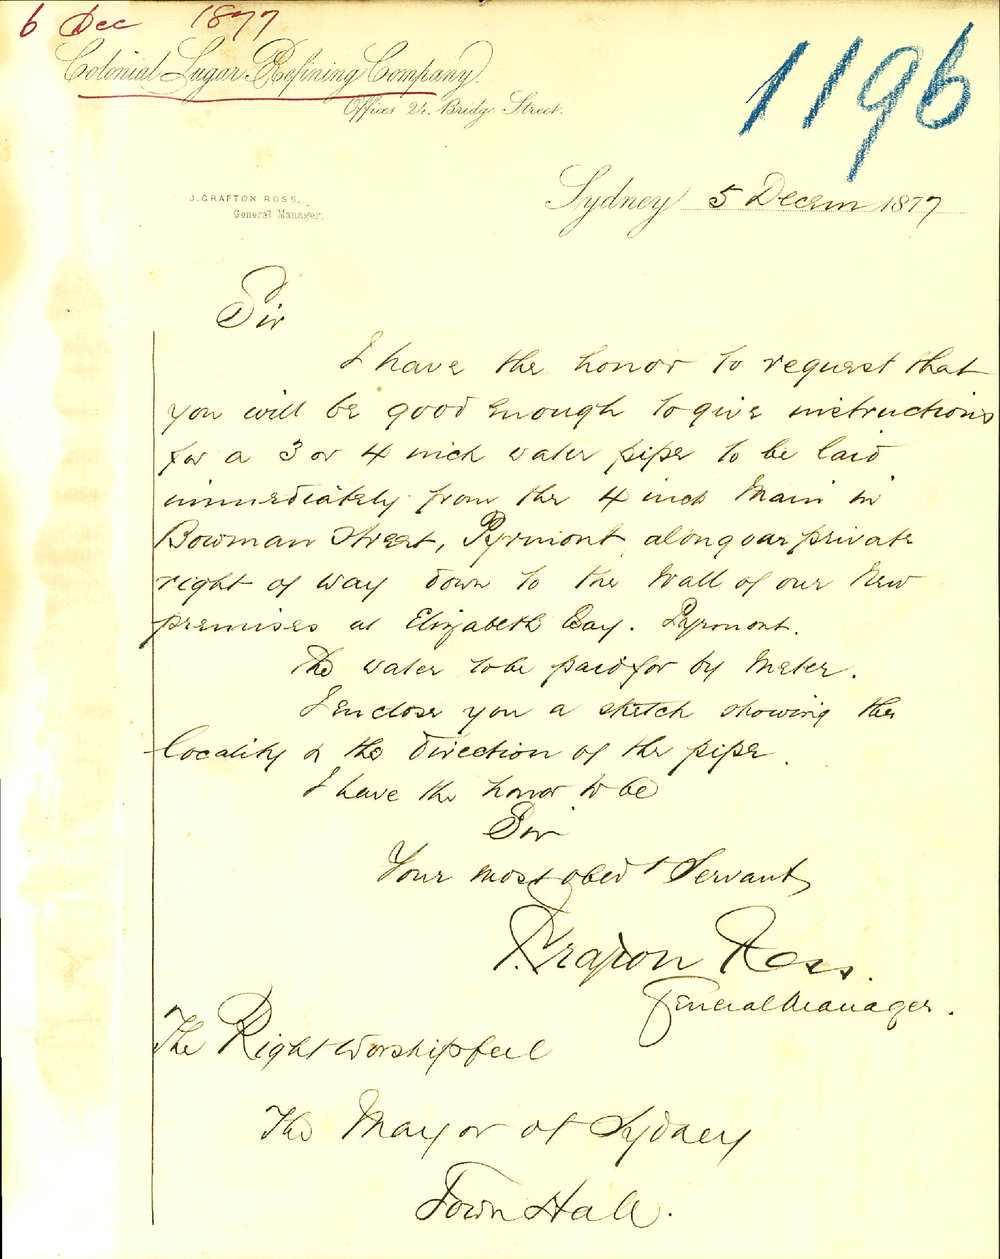 6 Dec 1877
1196
Colonial Sugar Refining Company.
Offices 24. Bridge Street.
J. GRAFTON ROSS,
General Manager.
Sydney 5 Decem 1877
Sir
I have the honor to request that
you will be good enough to give instructions
for a 3 or 4 inch water pipe to be laid
immediately from the 4 inch Main in
Bowman Street, Pyrmont, along our private
right of way down to the Wall of our New
premises at Elizabeth Bay. Pyrmont.
The water to be paid for by Meter.
I enclose you a sketch showing the
locality & the direction of the pipe.
I have the honor to be
Sir
Your most obedt Servant
J. Grafton Ross.
General Manager.
The Right Worshipful
The Mayor of Sydney
Town Hall.